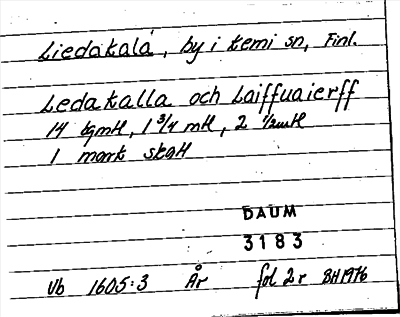 Liedakala, by i Kemi sn, Finl.
Ledakalla och Laiffuaierff
14 tgmtl, 1 3/4 mtl, 2 1/2mtl
1 mark skatt
DAUM
3183
Vb 1605:3 År fol 2r BH1976